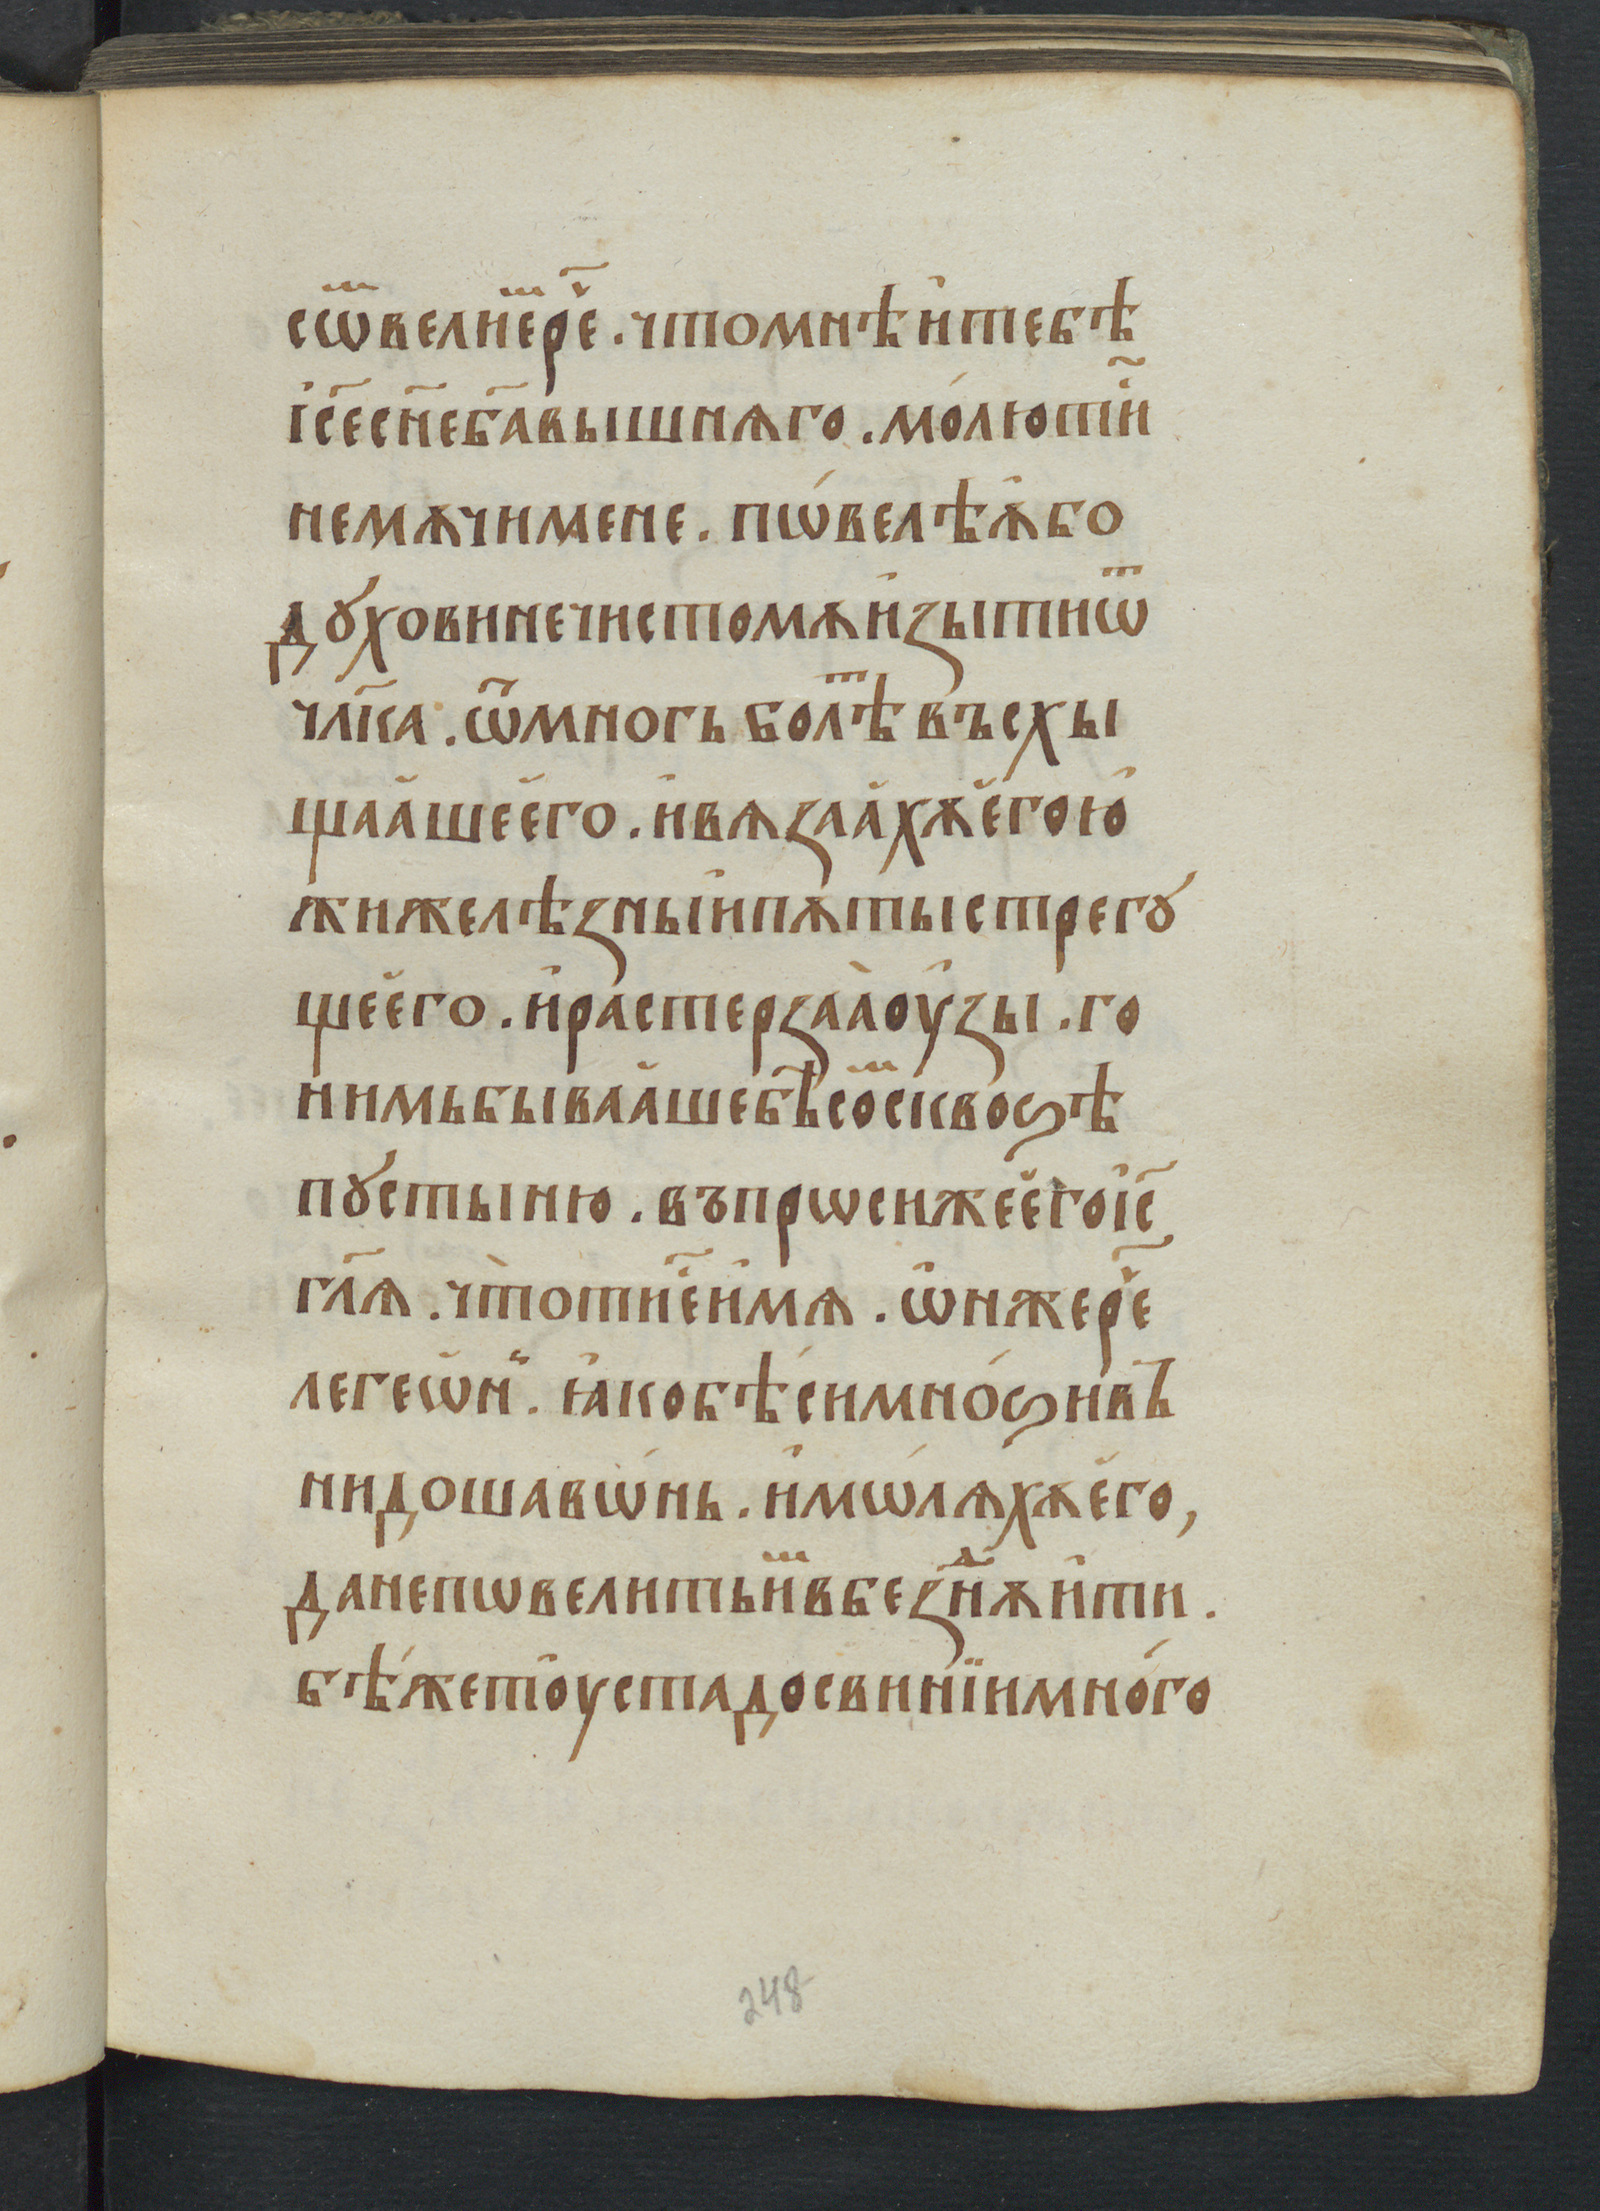 сѿвелиⷨ҇ере҇ⷱ. что мнѣ и҆ тебѣ
і҆с҃е сн҃е бг҃а вышнѧго. мо́лю ти҆ⷭ҇
не мѫчи мене. пѡ́велѣ ѧ҆ бо
дꙋхови нечистомѫ и҆ꙁыти ѿ
чл҃ка. ѿ многь бо лⷮѣ въсхы
щаа҆ше е҆го. и҆ вѧꙁаа҆хѫ е҆го ю҆
жи желѣꙁны і҆ и пѫты стрегꙋ
ще е҆го. и҆ растерꙁаа̀ оу҆ꙁы. го
нимь бываа҆ше бѣ҇соⷨ сквоꙃѣ
пꙋстыню. въпрѡси же е҆го і҆с҃
гл҃ѧ. что̀ ти е҆҃ и҆мѧ. ѡ҆н же ре҇ⷱ
легеѡ҆нⸯ. ꙗ҆ко бѣ́си мно́ꙃи вь
нидоша вѡ́нь. и҆ мѡ́лѧхѫ е҆го,
да не пѡвелить иⷨ в беꙁⷣнѫ и҆ти.
бѣ́ же тоу̑ стадо свинїи мно́го
248